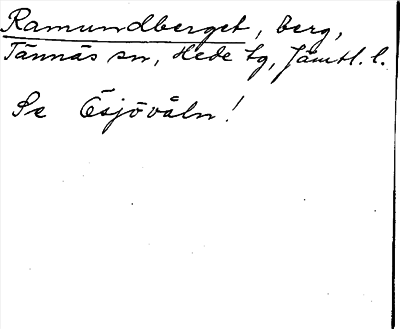 Ramundberget, berg,
Tännäs sn, Hede tg, Jämtl. l.
Se Ösjövåln!